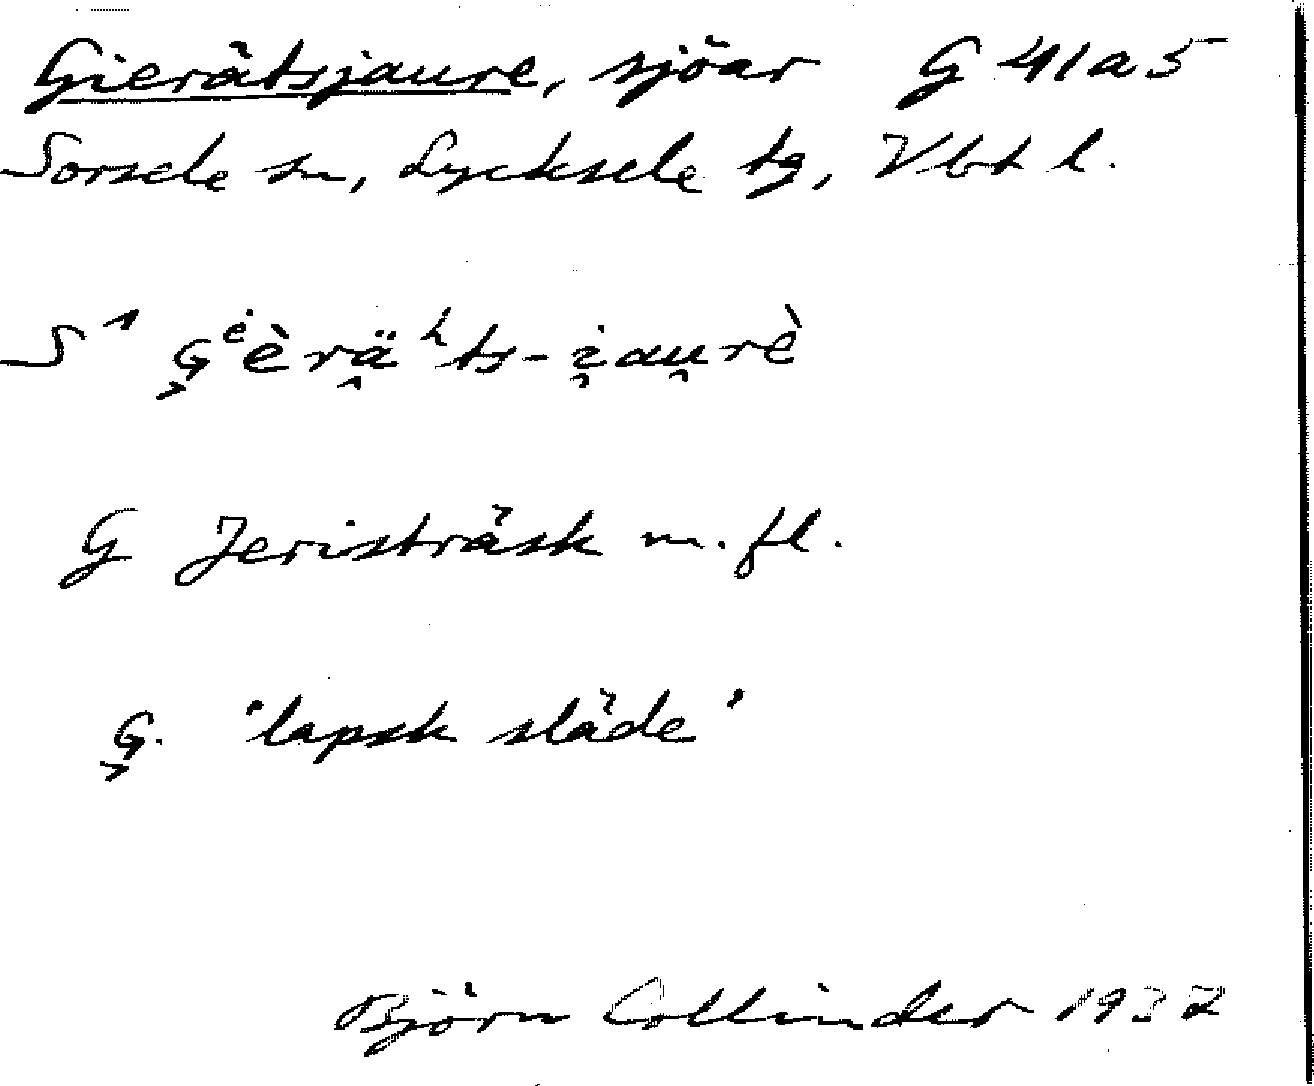 Gierätsjaure, sjöar G 41a5
Sorsele sn, Lycksele tg, Vbt l.
S¹ G̬ᵉ̇èrä̭ʰts-i̯au̯rè
G Jeristräsk m. fl.
G̬. 'lapsk släde'
Björn Collinder 1937